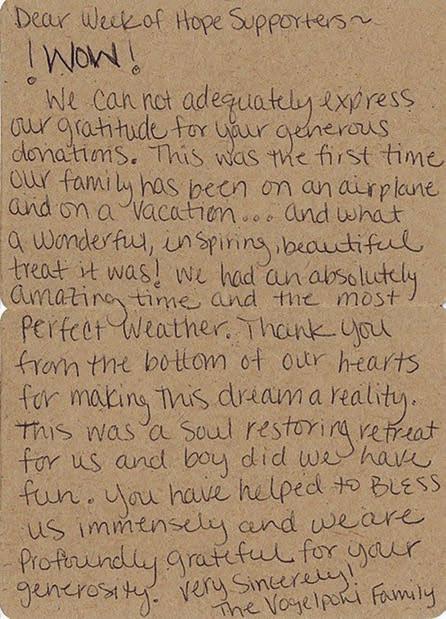 Dear Week of Hope Supporters~
! WOW!
We can not adequately express
our gratitude for your generous
donations. This was the first time
our family has been on an airplane
and on a vacation... and what
a wonderful, inspiring, beautiful
treat it was! We had an absolutely
amazing time and the most
perfect weather. Thank you
from the bottom of our hearts
for making this dream a reality.
This was a soul restoring retreat
for us and boy did we have
fun. You have helped to BLESS
us immensely and we are
profoundly grateful for your
generosity. Very Sincerely!
The Vogelpohl Family